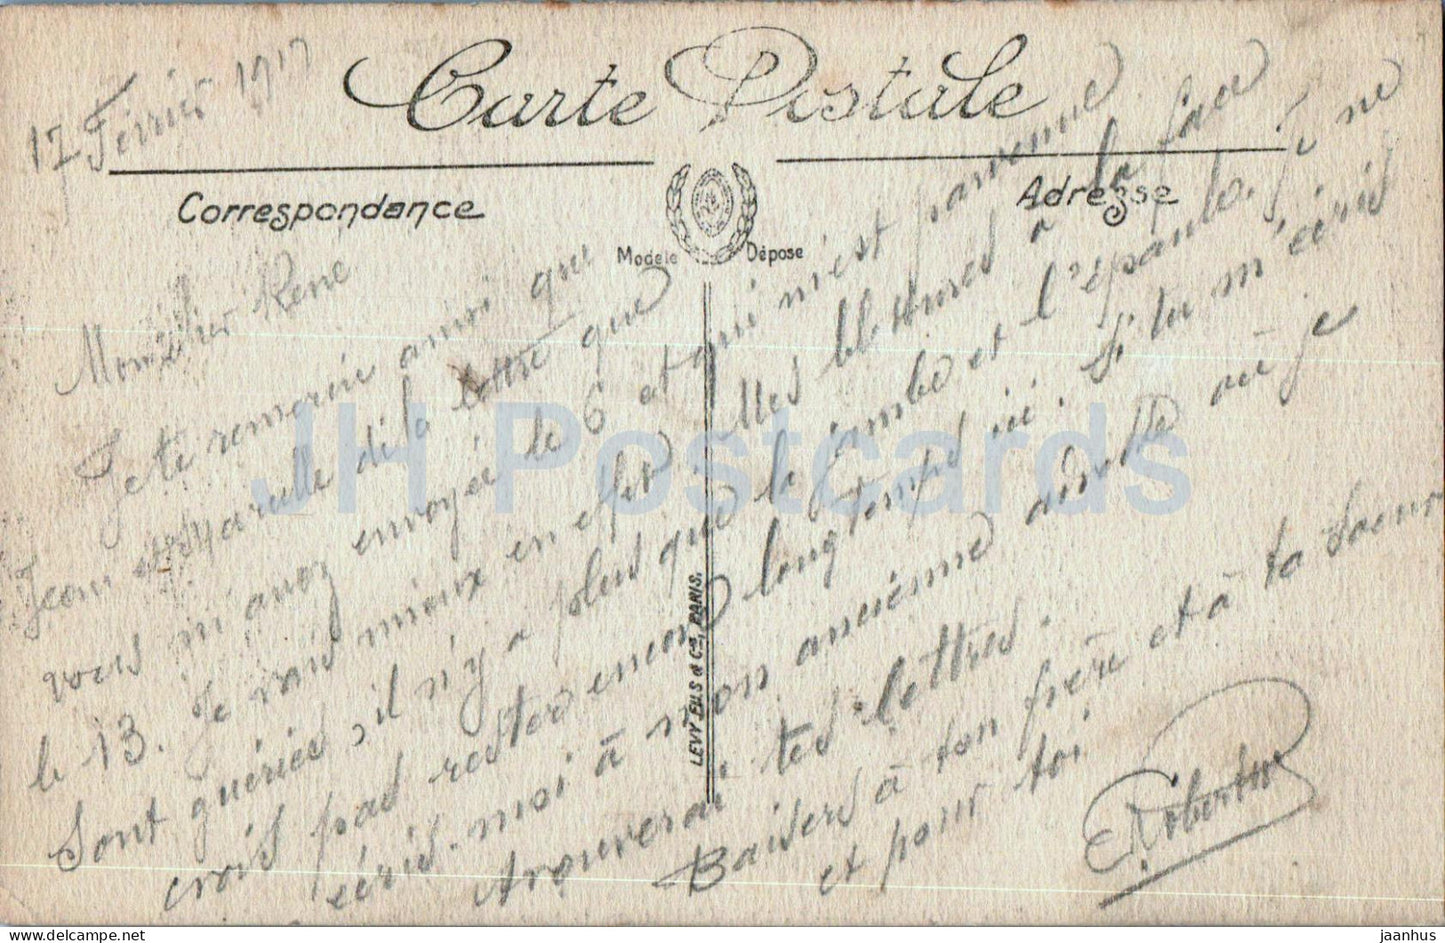 Carte Postale
Correspondance
Adresse
Modèle Déposé
LEVY FILS & Cie, PARIS.
17 Février 1917
Mon cher René
Je te remercie ainsi que
Jean et Marcelle de la lettre que
vous m'avez envoyée le 6 et qui m'est parvenue
le 13. Je vais mieux en effet. Mes blessures à la face
sont guéries, il n'y a plus que la jambe et l'épaule. Je ne
crois pas rester encore longtemps ici. Si tu m'écris
écris-moi à mon ancienne adresse où je
trouverai tes lettres.
Baisers à ton frère et à ta soeur
et pour toi
JH Postcards
www.delcampe.net
jaanhus